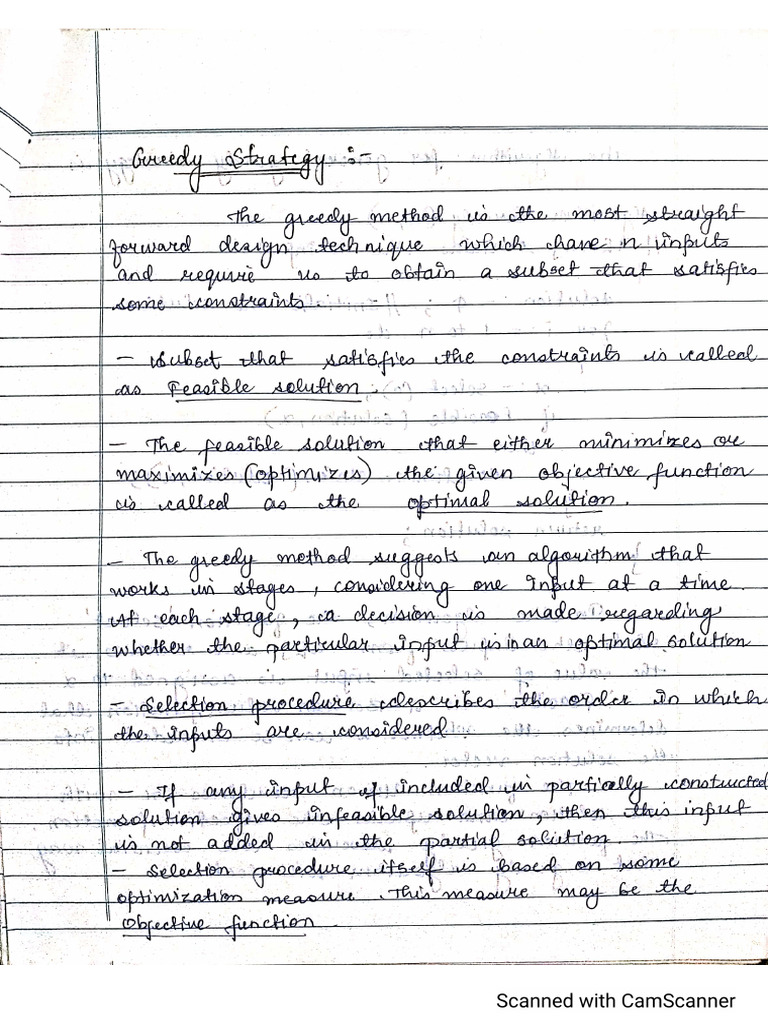 Greedy Strategy :-
The greedy method is the most straight
forward design technique which have n inputs
and require us to obtain a subset that satisfies
some constraints.
- Subset that satisfies the constraints is called
as Feasible solution.
- The feasible solution that either minimizes or
maximizes (optimizes) the given objective function
is called as the optimal solution.
- The greedy method suggests an algorithm that
works in stages, considering one input at a time.
At each stage, a decision is made regarding
whether the particular input is in an optimal solution
- Selection procedure describes the order in which
the inputs are considered.
- If any input if included in partially constructed
solution gives infeasible solution, then this input
is not added in the partial solution.
- Selection procedure itself is based on some
optimization measure. This measure may be the
objective function.
Scanned with CamScanner